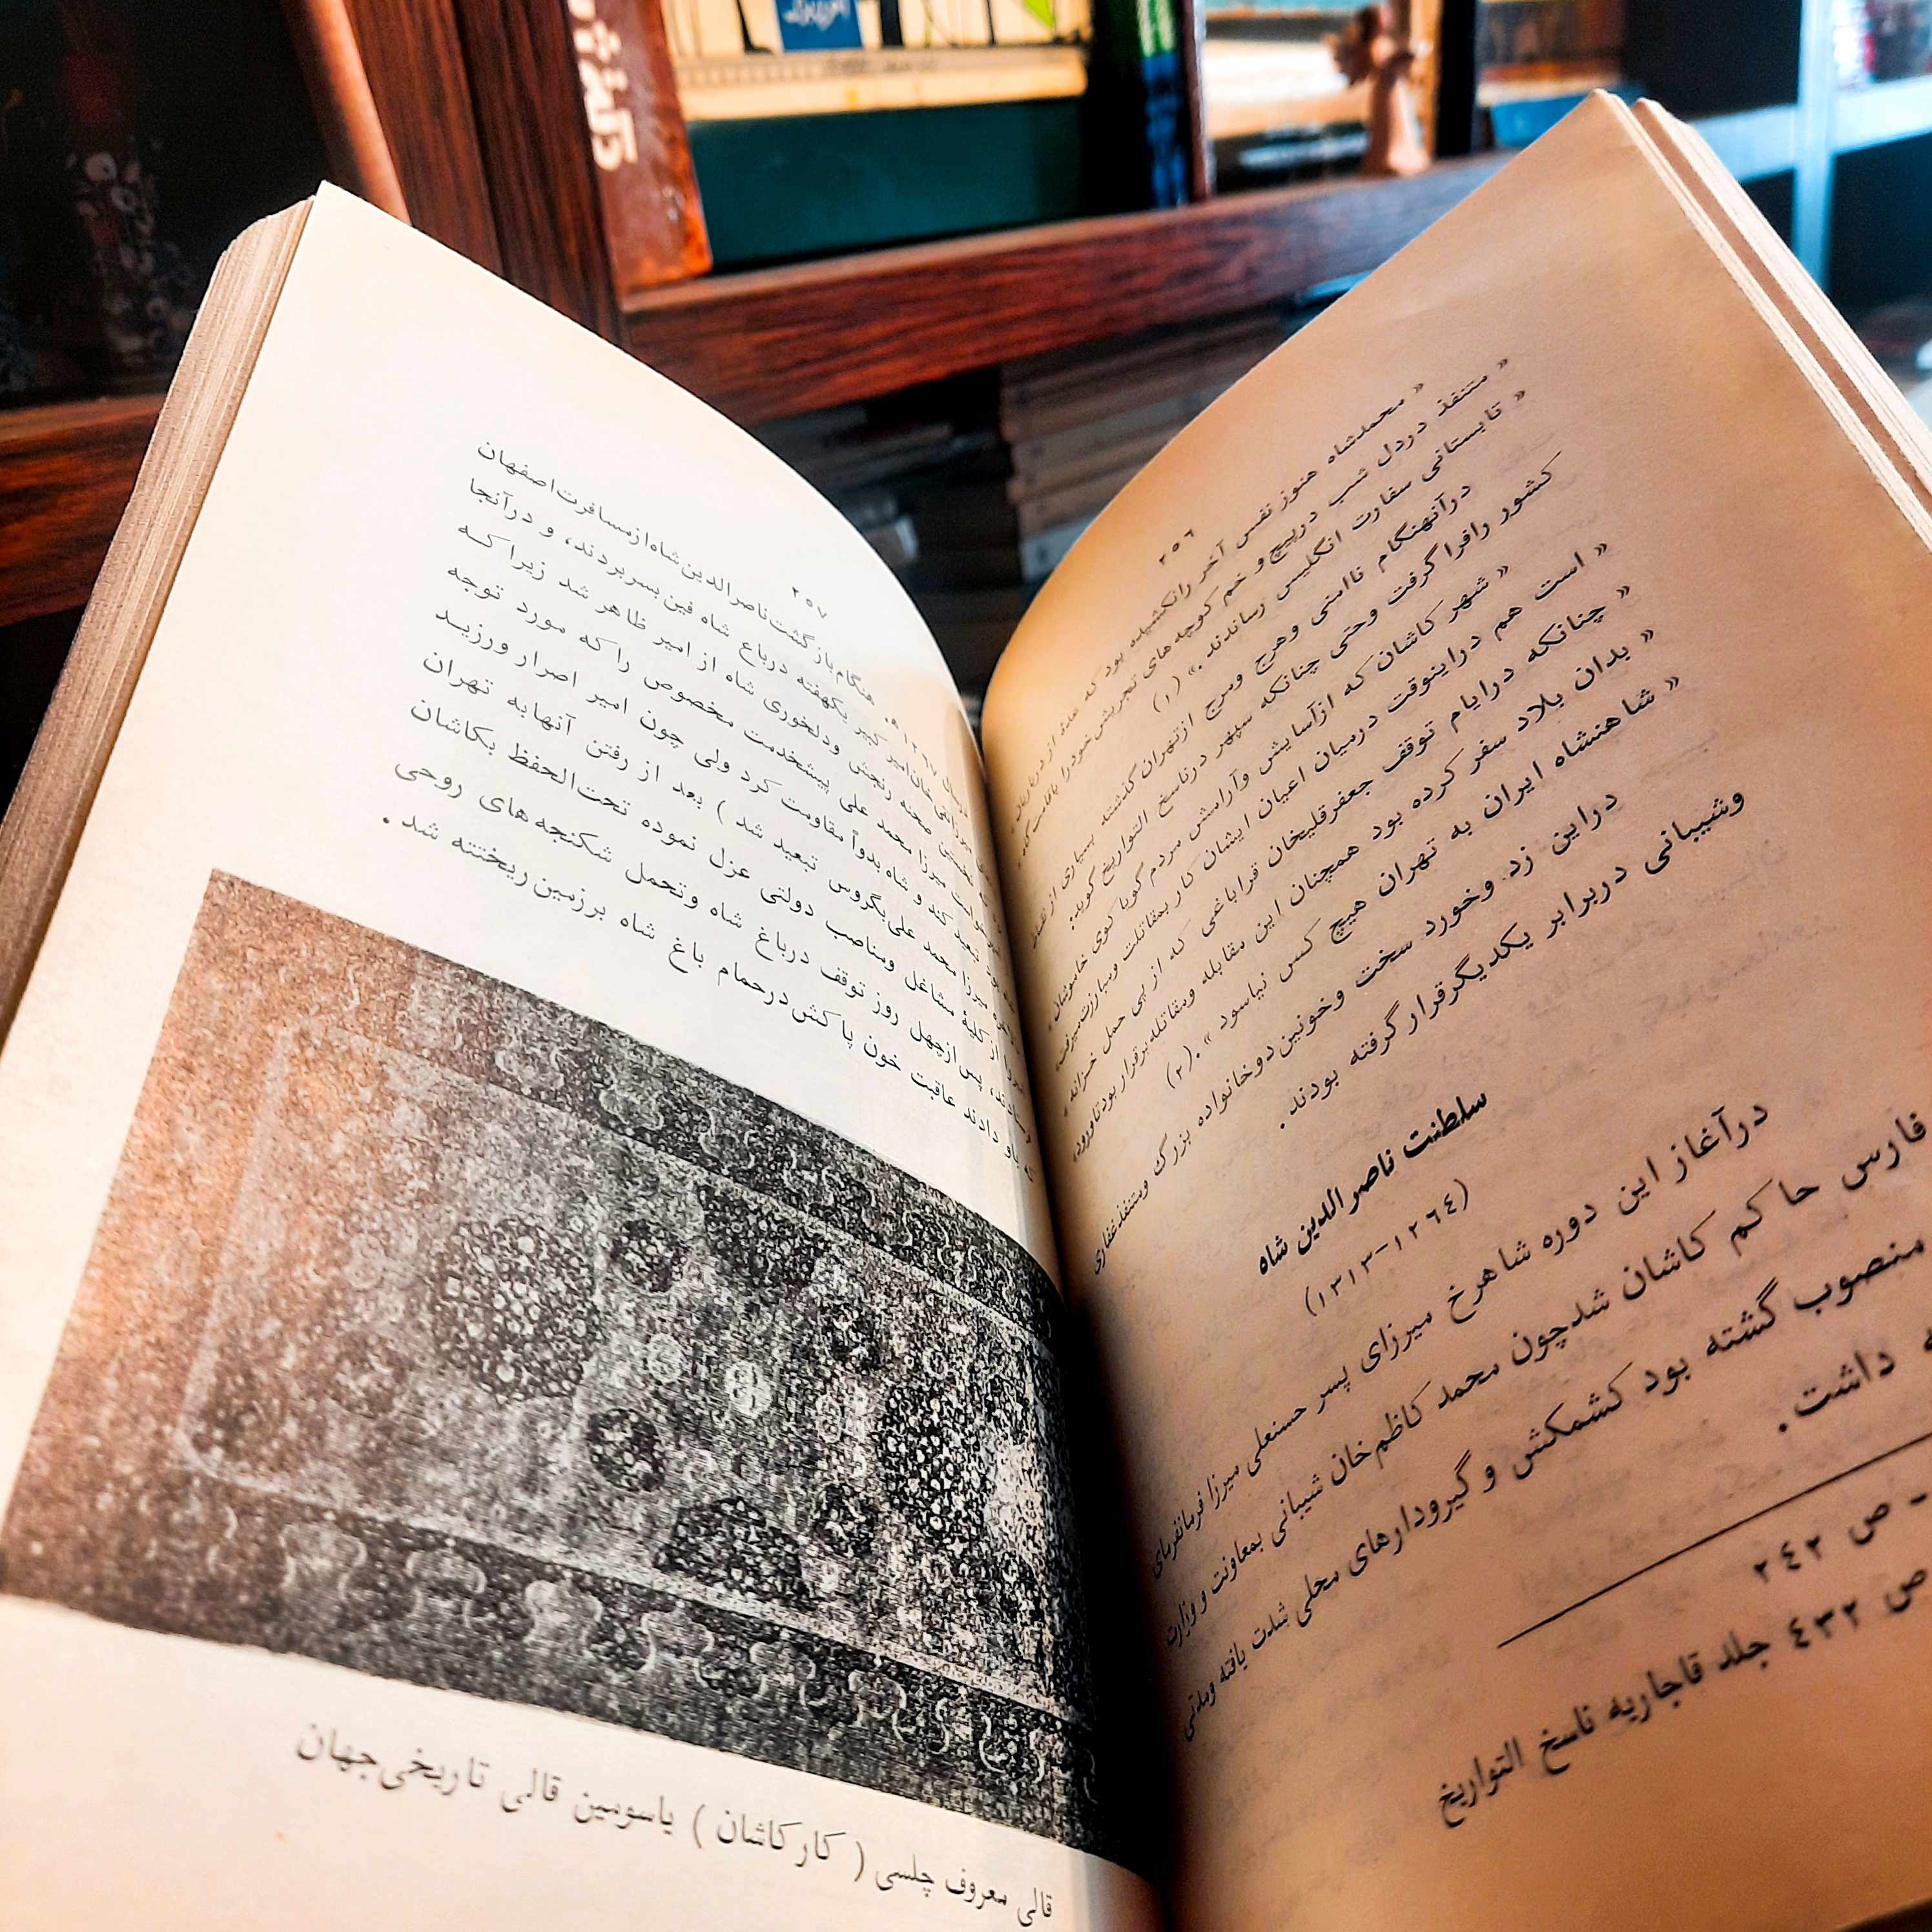 ۲۵۶
« محمدشاه هنوز نفس آخر را نکشیده بود که عده‌ای از درباریان
« متنفذ در دل شب در پیچ و خم کوچه‌های تجریش خود را باقامتگاه
« تابستانی سفارت انگلیس رساندند.» (۱)
در آنهنگام ناامنی و هرج و مرج از تهران گذشته بسیاری از نقاط
کشور را فرا گرفت و حتی چنانکه سپهر در ناسخ التواریخ گوید:
« شهر کاشان که از آسایش و آرامش مردم گویا کوی خاموشان
« است هم در اینوقت درمیان اعیان ایشان کار بمقاتلت و مبارزت میرفت،
« چنانکه در ایام توقف جعفرقلیخان قراباغی که از پی حمل خزانه
« بدان بلاد سفر کرده بود همچنان این مقابله و مقاتله برقرار بود تا ورود
« شاهنشاه ایران به تهران هیچ کس نیاسود ». (۲)
در این زد و خورد سخت و خونین دو خانواده بزرگ و متنفذ غفاری
و شیبانی در برابر یکدیگر قرار گرفته بودند.
سلطنت ناصر الدین شاه
(۱۲٦٤-۱۳۱۳)
در آغاز این دوره شاهرخ میرزای پسر حسنعلی میرزا فرمانفرمای
فارس حاکم کاشان شد چون محمد کاظم خان شیبانی بمعاونت و وزارت
منصوب گشته بود کشمکش و گیرودارهای محلی شدت یافته و مدتی
داشت.
- ص ۲٤۲
ص ٤۳۲ جلد قاجاریه ناسخ التواریخ
۲۵۷
۱۲۶۷ ه. هنگام بازگشت ناصرالدین شاه از مسافرت اصفهان
خان امیر کبیر یکهفته در باغ شاه فین بسر بردند، و در آنجا
نخستین صحنه رنجش و دلخوری شاه از امیر ظاهر شد زیرا که
میرزا محمد علی پیشخدمت مخصوص را که مورد توجه
بود تبعید کند و شاه بدواً مقاومت کرد ولی چون امیر اصرار ورزید
میرزا محمد علی بگروس تبعید شد ) بعد از رفتن آنها به تهران
از کلیهٔ مشاغل و مناصب دولتی عزل نموده تحت‌الحفظ بکاشان
پس از چهل روز توقف در باغ شاه و تحمل شکنجه‌های روحی
باو دادند عاقبت خون پاکش در حمام باغ شاه بر زمین ریخته شد.
قالی معروف چلسی ( کار کاشان ) یا سومین قالی تاریخی جهان